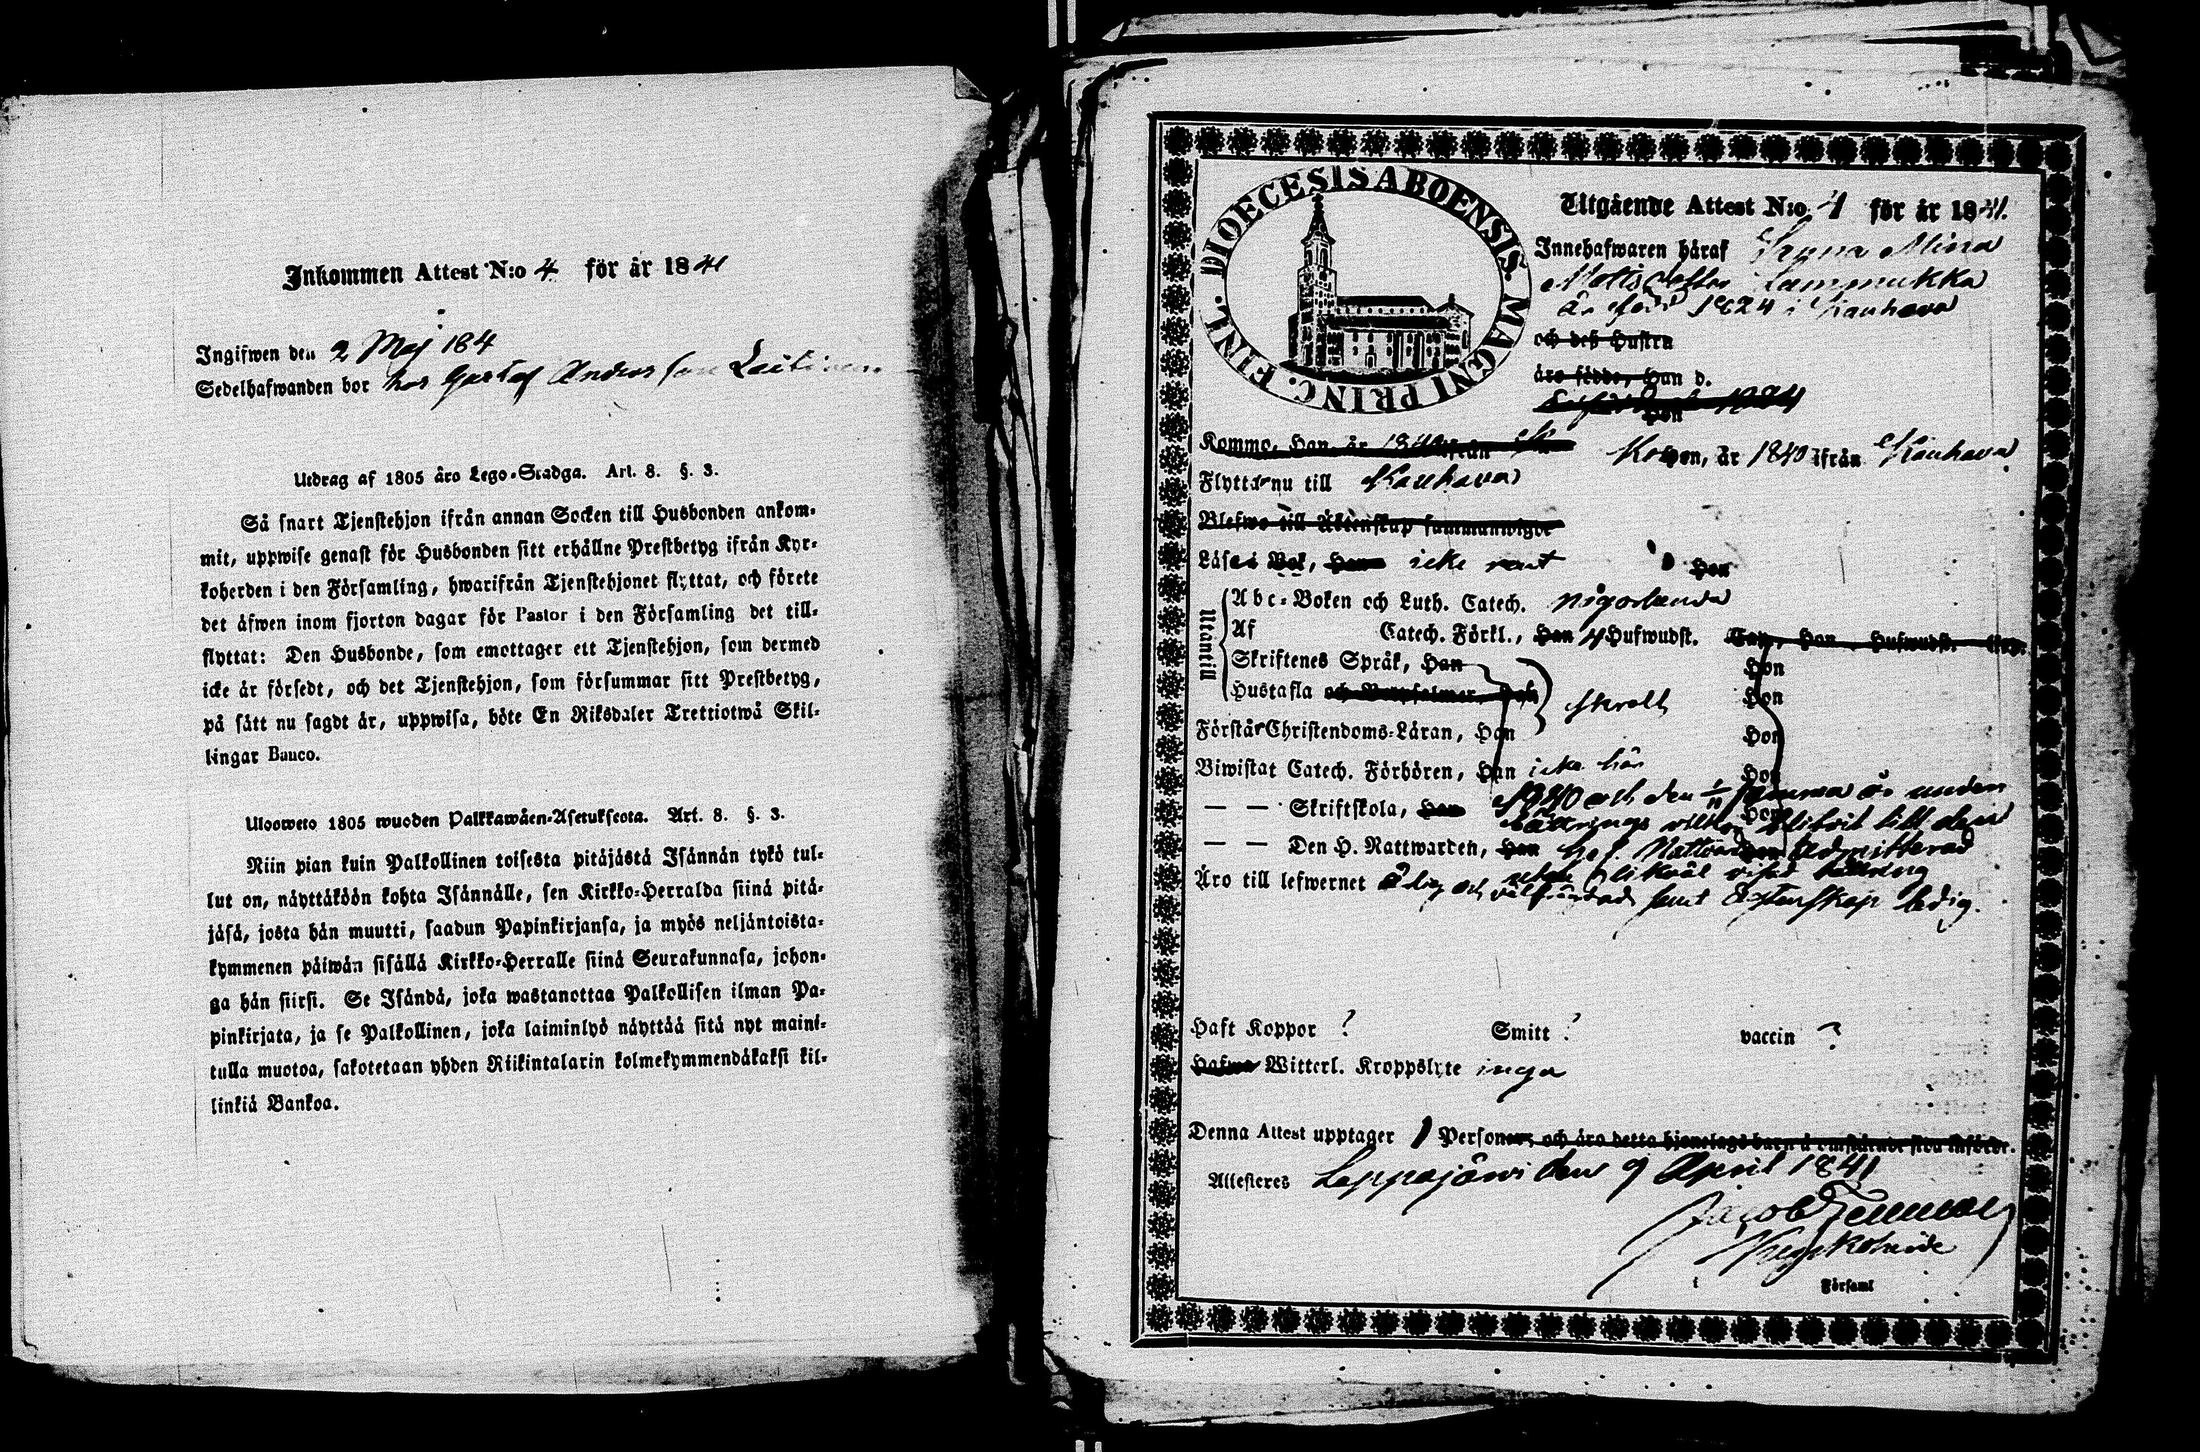 Inkommen Attest N:o 4 för år 1841
Ingifwen den 2 Maj 184
Sedelhafwanden bor hos Gustaf Andersson
Utdrag af 1805 års Lego-Stadga. Art. 8. §. 3.
Så snart Tjenstehjon ifrån annan Socken till Husbonden ankom-
mit, uppwise genast för Husbonden sitt erhållne Prestbetyg ifrån Kyr-
koherden i den Församling, hwarifrån Tjenstehjonet flyttat, och förete
det äfwen inom fjorton dagar för Pastor i den Församling det till-
flyttat: Den Husbonde, som emottager ett Tjenstehjon, som dermed
icke är försedt, och det Tjenstehjon, som försummar sitt Prestbetyg,
på sätt nu sagdt är, uppwisa, böte En Riksdaler Trettiotwå Skil-
lingar Banco.
Ulosweto 1805 wuoden Palkkawäen-Asetuksesta. Art. 8. §. 3.
Niin pian kuin Palkollinen toisesta pitäjästä Isännän tykö tul-
lut on, näyttäköön kohta Isännälle, sen Kirkko-Herralda siinä pitä-
jäsä, josta hän muutti, saadun Papinkirjansa, ja myös neljäntoista-
kymmenen päiwän sisällä Kirkko-Herralle siinä Seurakunnasa, johon-
ga hän siirsi. Se Isändä, joka wastanottaa Palkollisen ilman Pa-
pinkirjata, ja se Palkollinen, joka laiminlyö näyttää sitä nyt maini-
tulla muotoa, sakotetaan yhden Riikintalarin kolmekymmendäkaksi kil-
linkiä Bankoa.
DIOECESIS ABOENSIS. MAGNI PRINC. FINL.
Utgående Attest N:o 4 för år 1841.
Innehafwaren häraf Mina
Mattsdotter Lammukka
är född 1824 i Kauhava
och deß Hustru
äro födde, Han d.
1824
Hon
Kommo, Han, år 1840 ifrån Kom Hon, år 1840 ifrån Kauhava
Flyttar nu till Kauhava
Blefwo till Äktenskap sammanwigde
Läser i Bok, Han icke rent Hon
Utantill
Abc-Boken och Luth. Catech. någorlunda
Af Catech. Förkl., Han 4 Hufwudst. Cap., Han, Hufwudst. Cap.
Skriftenes Språk, Han Hon
Hustafla och Botpsalmer, Han Hon
Förstår Christendoms-Läran, Han Hon
Biwistat Catech. Förhören, Han icke här Hon
— — Skriftskola, Han 1840 och den samma år under
Hon
till den
— — Den H. Nattwarden, Han Nattvarden admitterad
Äro till lefwernet och samt Äktenskap ledig.
Haft Koppor ? Smitt ? vaccin ?
Hafwa Witterl. Kroppslyte inga
Denna Attest upptager 1 Personer, och äro detta hjonelags barn å omstående sida införde.
Attesteres Lappajärvi den 9 April 1841
Jacob
Kyrkoherde
i Församl